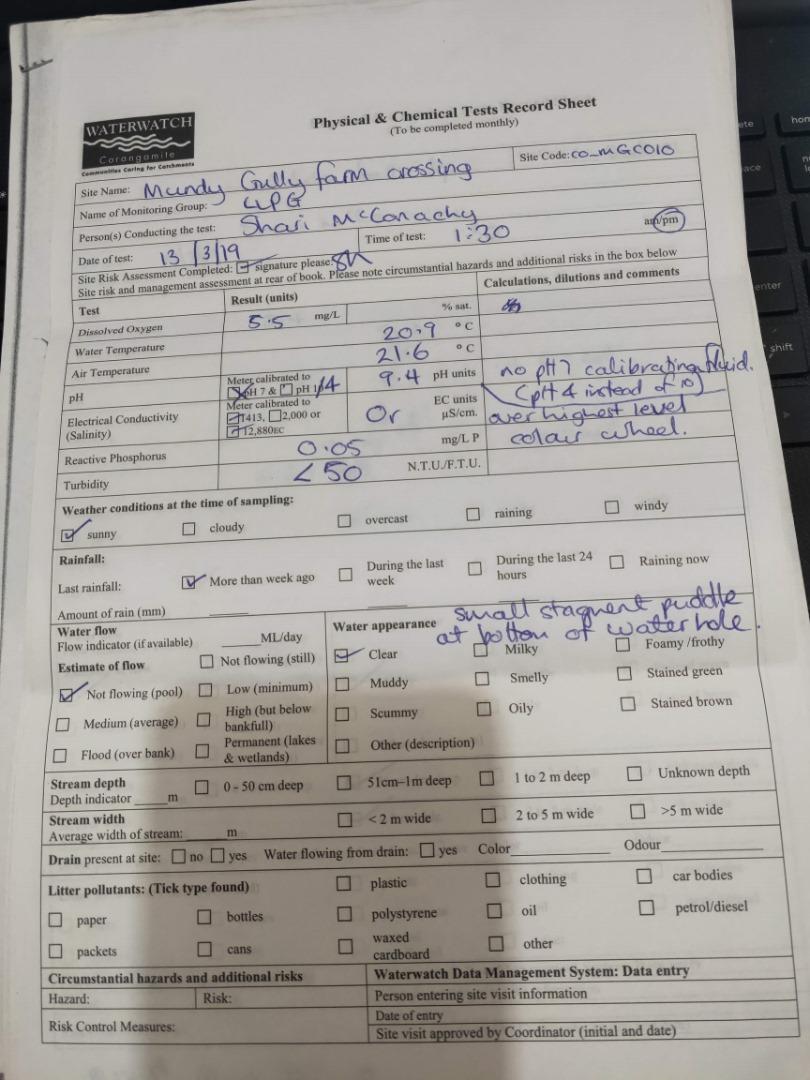 WATERWATCH
Corangamite
Communities Caring for Catchments
Physical & Chemical Tests Record Sheet
(To be completed monthly)
Site Name: Mundy Gully farm crossing
Site Code: CO_MGC010
Name of Monitoring Group: LLPG
Person(s) Conducting the test: Shari McConachy
Date of test: 13/3/19 Time of test: 1:30 am/pm
Site Risk Assessment Completed: signature please:
Site risk and management assessment at rear of book. Please note circumstantial hazards and additional risks in the box below
Test Result (units) Calculations, dilutions and comments
Dissolved Oxygen 5.5 mg/L % sat.
Water Temperature 20.9 °C
Air Temperature 21.6 °C
pH Meter calibrated to pH 7 & pH 10/4 9.4 pH units no pH7 calibrating fluid.
(pH 4 instead of 10)
Electrical Conductivity (Salinity) Meter calibrated to 1413, 2,000 or 12,880EC Or EC units µS/cm. over highest level
Reactive Phosphorus 0.05 mg/L P colour wheel.
Turbidity < 50 N.T.U./F.T.U.
Weather conditions at the time of sampling:
sunny cloudy overcast raining windy
Rainfall:
Last rainfall: More than week ago During the last week During the last 24 hours Raining now
Amount of rain (mm)
Water flow
Flow indicator (if available) ML/day
Water appearance small stagnent puddle
at bottom of waterhole.
Estimate of flow Not flowing (still) Clear Milky Foamy /frothy
Not flowing (pool) Low (minimum) Muddy Smelly Stained green
Medium (average) High (but below bankfull) Scummy Oily Stained brown
Flood (over bank) Permanent (lakes & wetlands) Other (description)
Stream depth
Depth indicator m 0 - 50 cm deep 51cm–1m deep 1 to 2 m deep Unknown depth
Stream width
Average width of stream: m < 2 m wide 2 to 5 m wide >5 m wide
Drain present at site: no yes Water flowing from drain: yes Color Odour
Litter pollutants: (Tick type found) plastic clothing car bodies
paper bottles polystyrene oil petrol/diesel
packets cans waxed cardboard other
Circumstantial hazards and additional risks Waterwatch Data Management System: Data entry
Hazard: Risk: Person entering site visit information
Risk Control Measures: Date of entry
Site visit approved by Coordinator (initial and date)
enter
shift